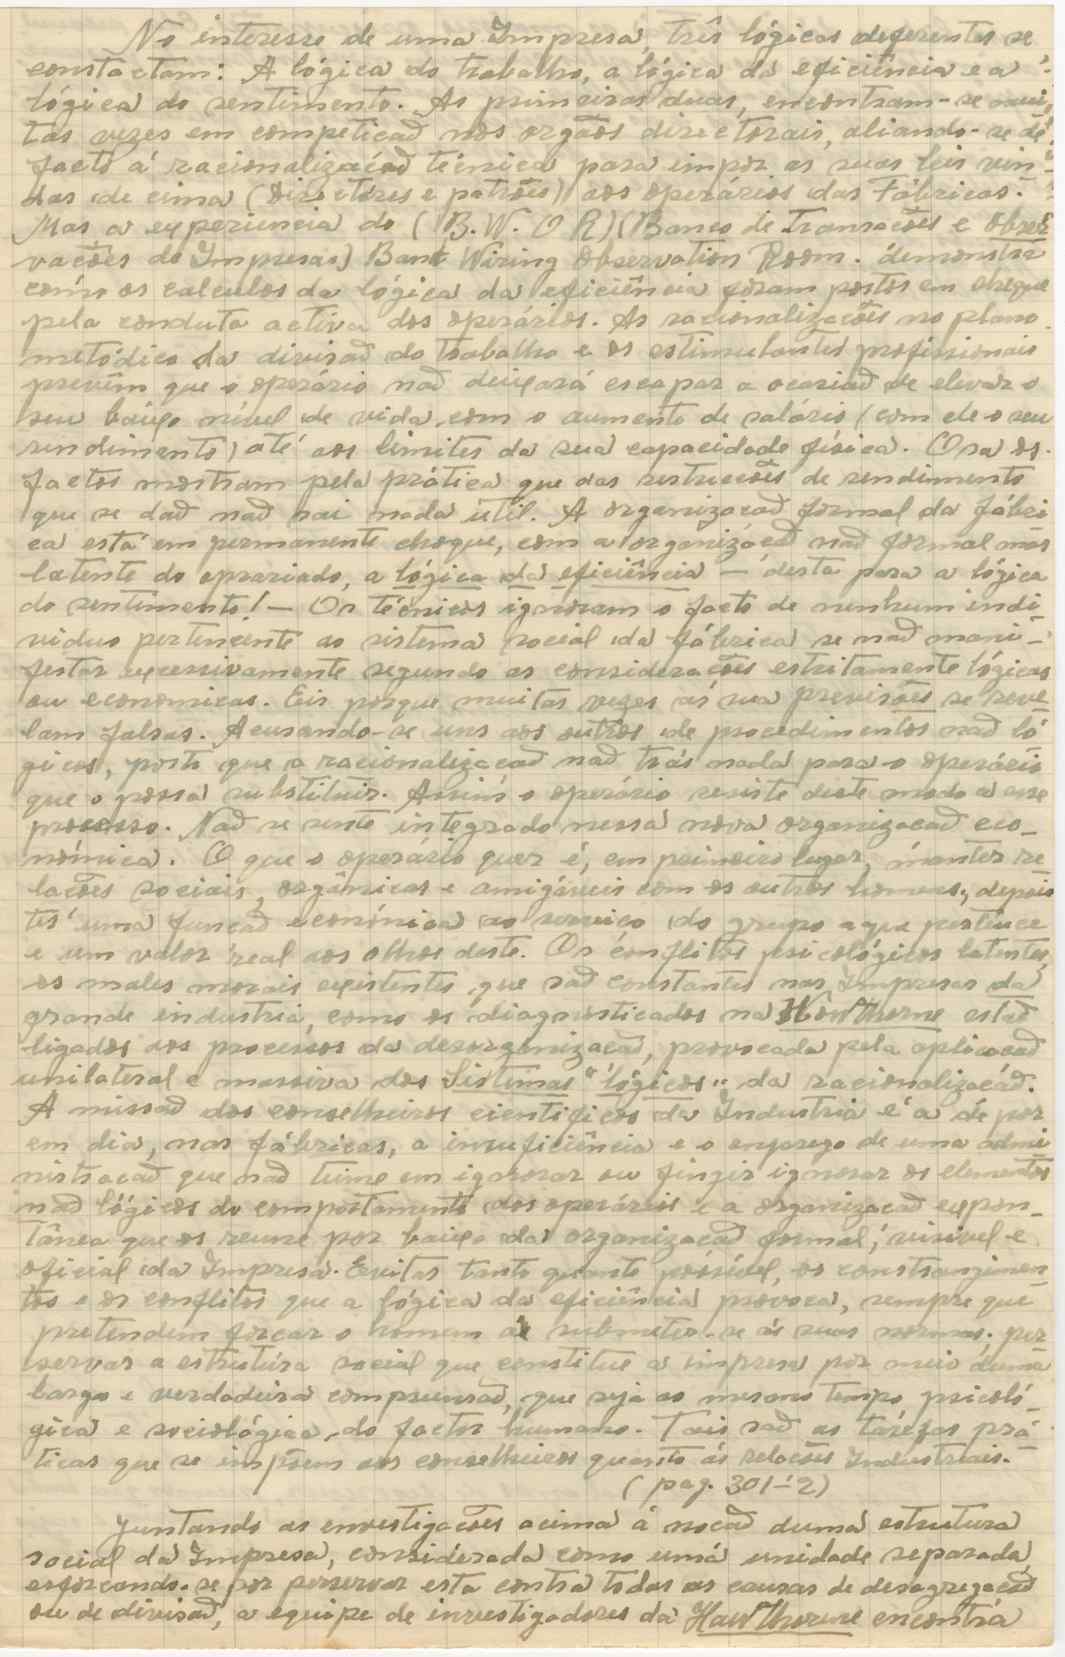 No interesse de uma Impresa, três lógicas deferentes se
constactam: A lógica do trabalho, a lógica da eficiência e a
lógica do sentimento. As primeiras duas, encontram-se mui-
tas vezes em competicaõ nos orgãos directorais, aliando-se de
facto á racionalizaçaõ técnica para impor as suas leis vin-
das de cima (Directores e patrões) aos operários das Fábricas.
Mas a experiencia do (B. W. O R) (Banco de Transacões e Obser
vacões de Impresas) Bank Wiring Observation Room. démonstra
como os calculos da lógica da eficiência foram postos em cheque
pela conduta activa dos operários. As racionalizacões no plano
metódico da divisaõ do trabalho e os estimulantes profissionais
prevêm que o operário naõ deixará escapar a ocasiaõ de elevar o
seu baixo nível de vida, com o aumento de salário (com ele o seu
rendimento) até aos limites da sua capacidade física. Ora os
factos mostram pela prática que das restriccões de rendimento
que se daõ naõ sai nada útil. A organizacaõ formal da fábri
ca está em permanente choque, com a organizácaõ naõ formal mas
latente do oprariado, a lógica da eficiência — desta para a lógica
do sentimento! — Os técnicos ignoram o facto de nenhum indi-
viduo pertencente ao sistema social da fábrica se naõ mani-
festar excessivamente segundo as consideracões estritamente lógicas
ou economicas. Eis porque muitas vezes as sua previsões se reve
lam falsas. Acusando-se uns aos outros de procedimentos naõ ló
gicos, posto que a racionalizacaõ naõ trás nada para o operário
que o possa substituir. Assim o operário resiste deste modo a esse
processo. Naõ se sente integrado nessa nova organizacaõ eco-
nómica. O que o operário quer é, em primeiro lugar, manter re
lacões sociais, orgânicas e amigáveis com os outros homens; depois
ter uma funcaõ económica ao servico do grupo a que pertence
e um valor real aos olhos deste. Os conflitos psicológicos latentes,
os males morais existentes que saõ constantes nas Impresas da
grande industria, como os diagnosticados na Howthorne estaõ
ligados aos processos da desorganizacaõ, provocada pela aplicacaõ
unilateral e massiva dos Sistemas "lógicos" da racionalizacáõ.
A missaõ dos conselheiros cientificos da Industria é a de por
em dia, nas fábricas, a insuficiência e o emprego de uma admi
nistracaõ que naõ teime em ignorar ou fingir ignorar os elementos
naõ lógicos do comportamento dos operários e a organizacaõ expon-
tânea que os reune por baixo da organizacaõ formal, visivel e
oficial da Impresa. Evitar tanto quanto póssivel, os constrangimen-
tos e os conflitos que a lógica da eficiência provoca, sempre que
pretendem forcar o homem a submeter-se ás suas normas; per
servar a estrutura social que constitue a impresa por meio duma
larga e verdadeira compreensaõ, que seja ao mesmo tempo, psicoló-
gica e sociológica, do factor humano. Tais saõ as tarefas prá-
ticas que se impõem aos conselheiros quanto ás relacões Industriais.
(pag. 301-2)
Juntando as investigacões acima á nocaõ duma estrutura
social da Impresa, considerada como umá unidade separada,
esforcando-se por perservar esta contra todas as causas de desagregacaõ
ou de divisaõ, a equipe de investigadores da Hawthorne encontra